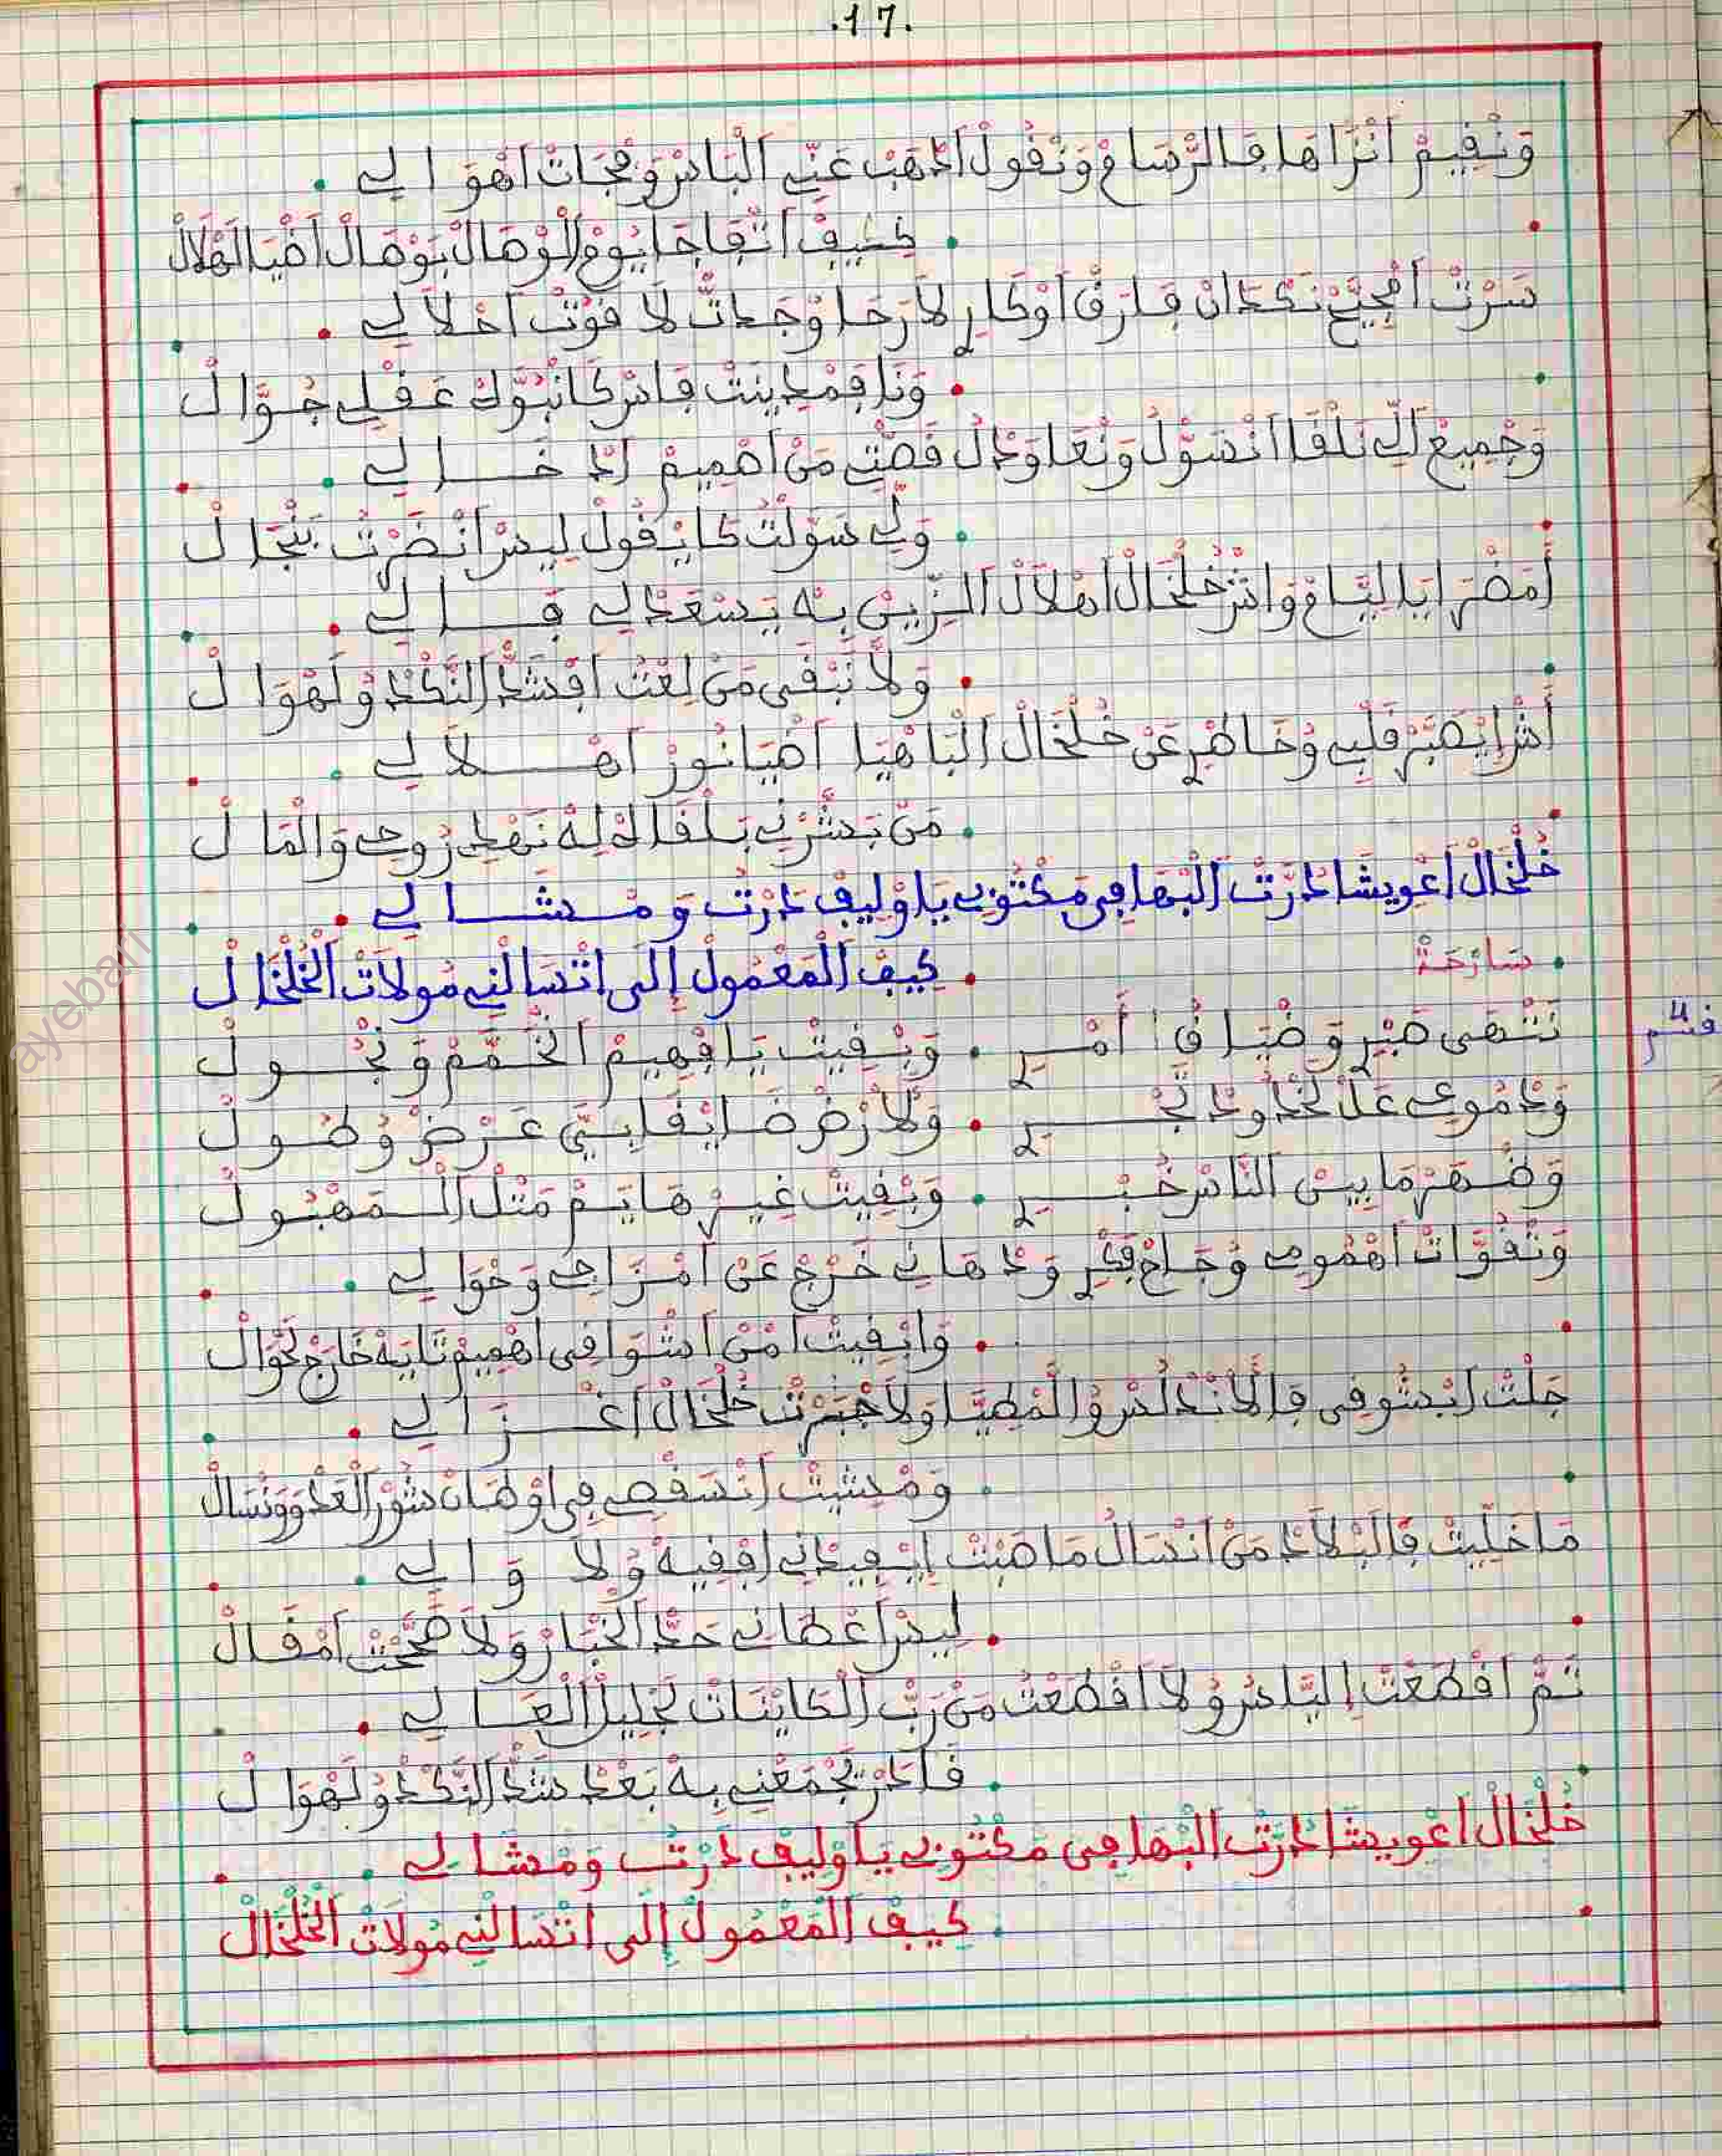 .17.
وَنْقِيمْ انْزَاهَا فَالرّْسَامْ وَنْقُولْ اَدْهَبْ عَنِّي اَلْبَاسْ وَفْجَاتْ اَهْوَالِي
كِيفْ اتْفَاجَا يُومْ الْوْصَالْ بَوْصَالْ اَضْيَا لَهْلَالْ
سَرْتْ اَمْجِيَّحْ نَكْدَانْ فَارَقْ اَوْكَارِي لَا رَحَا وْجَدْتْ لَا قُوتْ اَحْلَالِي
وَنَا فَمْدِينَتْ فَاسْ كَانْبُوَّكْ عَقْلِي جُوَّالْ
وَجْمِيعْ اَلِّي نَلْقَا انْسَوّْلُ وَنْعَاوَدْلُ قَصّْتِي مَنْ اَهْمِيمْ اَدْخَالِي
وَلِّي سَوَّلْتُ كَايْقُولْ لِيسْ اَنْضَرْتْ بَنْجَالْ
اَمْضَى يَا لِيَّامْ وَاشْ خُلْخَالْ اَهْلَالْ الزِّينْ بِهْ يَسْعَدْ لِي فَالِي
وَلَّا نَبْقَى مَنْ لِعْتُ اَفْشَدّْ النّْكَدْ وُلَهْوَالْ
اَشْ ايْصَبَّرْ قَلْبِي وُخَاطْرِي عَنْ خُلْخَالْ اَلْبَاهْيَا اَضْيَا نُورْ اَهْلَالِي
مَنْ بَشَّرْنِي بَلْقَاكْ لِهْ نَهْدِي رُوحِي وَالْمَالْ
خُلْخَالْ اَعْوِيشَا دُرَّتْ اَلْبْهَا فِي مَكْتُوبِي يَا وْلِيفْ دَرْتُ وَمْشَالِي
كِيفْ اَلْمَعْمُولْ إِلَى اتْسَالْنِي مُولَاتْ اَلْخُلْخَالْ
سَارْحَةْ
قسم 4
نَتْهَى صَبْرِي وَضْيَاقْ اَمْرِي . وَبْقِيتْ يَا فْهِيمْ اَنْخَمَّمْ وَنْجُولْ
وَدْمُوعِي عَلْ لَخْدُودْ تَجْرِي . وَلَارْضْ ضَايْقَا بِيَّ عَرْضْ وُطُولْ
وَضْهَرْ مَا بِينْ اَلنَّاسْ خُبْرِي . وَبْقِيتْ غِيرْ هَايَمْ مَتْلْ اَلْمَهْبُولْ
وَتْقْوَّاتْ اَهْمُومِي وُجَاحْ فِكْرِي وَدْهَانِي خَرْجْ عَنْ اَمْزَاجِي وَحْوَالِي
وَابْقِيتْ اَمْنْ اَشْوَاقِي اَهْمِيمْ تَايَهْ خَارَجْ لَحْوَالْ
جَلْتْ اَبْشُوقِي فَالَانْدَلُسْ وُالْمْطِيَّا وَلَا جْبَرْتْ خُلْخَالْ اَغْزَالِي
وَمْشِيتْ اَنْسَقْصِي فِي اَوْطَانْ شُورْ اَلْعَدْوَ وَنْسَالْ
مَا خَلِّيتْ فَالَبْلَادْ مَنْ اَنْسَالُ مَا صَبْتْ اِيْفِيدْنِي اَفْقِيهْ وُلَا وَالِي
لِيسْ اَعْطَانِي حَدّْ اَلْخْبَارْ وَلَا صَحَّتْ اَمْقَالْ
تَمّْ اَقْطَعْتْ اِلْيَّاسْ وُلَا اَقْطَعْتُ مَنْ رَبّْ اَلْكَايْنَاتْ لَجْلِيلْ اَلْعَالِي
قَادَرْ يَجْمَعْنِي بِهْ بَعْدْ شَدّْ النّْكَدْ وُلَهْوَالْ
خُلْخَالْ اَعْوِيشَا دُرَّتْ اَلْبْهَا فِي مَكْتُوبِي يَا وْلِيفْ دَرْتُ وَمْشَالِي
كِيفْ اَلْمَعْمُولْ إِلَى اتْسَالْنِي مُولَاتْ اَلْخُلْخَالْ